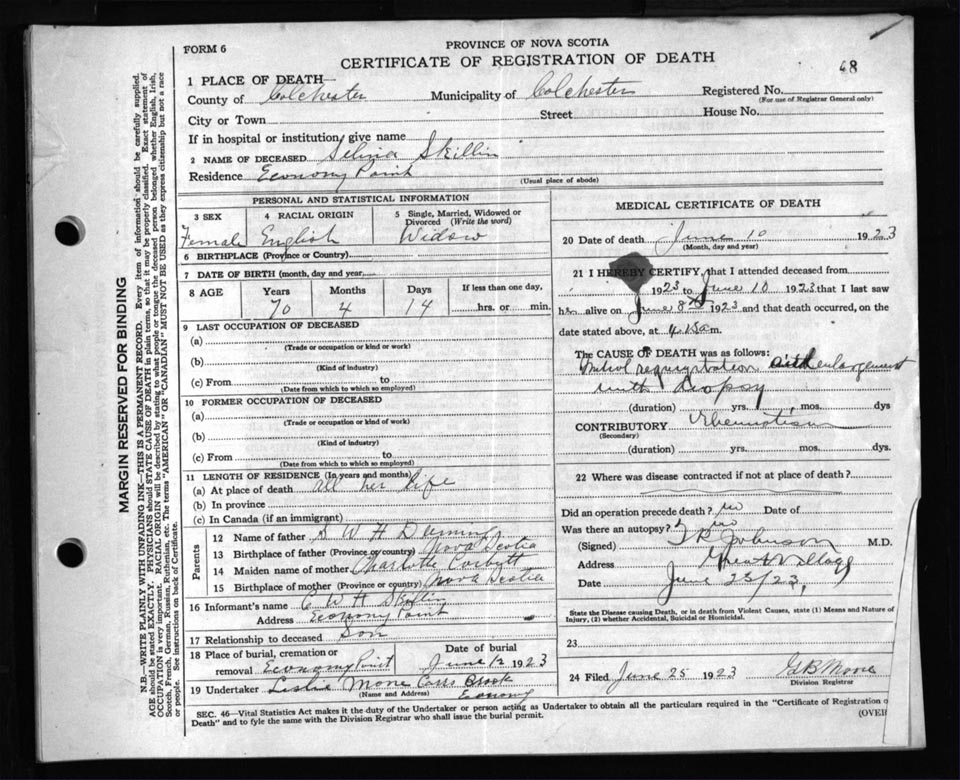 FORM 6
PROVINCE OF NOVA SCOTIA
CERTIFICATE OF REGISTRATION OF DEATH
68
1 PLACE OF DEATH—
County of Colchester Municipality of Colchester Registered No.
(For use of Registrar General only)
City or Town Street House No.
If in hospital or institution, give name
2 NAME OF DECEASED Selina Skillin
Residence Economy Point
(Usual place of abode)
PERSONAL AND STATISTICAL INFORMATION
3 SEX 4 RACIAL ORIGIN 5 Single, Married, Widowed or Divorced (Write the word)
Female English Widow
6 BIRTHPLACE (Province or Country)
7 DATE OF BIRTH (month, day and year)
8 AGE Years Months Days If less than one day,
70 4 14 hrs. or min.
9 LAST OCCUPATION OF DECEASED
(a)
(Trade or occupation or kind or work)
(b)
(Kind of industry)
(c) From to
(Date from which to which so employed)
10 FORMER OCCUPATION OF DECEASED
(a)
(Trade or occupation or kind of work)
(b)
(Kind of industry)
(c) From to
(Date from which to which so employed)
11 LENGTH OF RESIDENCE (In years and months)
(a) At place of death all her life
(b) In province
(c) In Canada (if an immigrant)
Parents
12 Name of father W H
13 Birthplace of father (Province or country) Nova Scotia
14 Maiden name of mother Charlotte Corbett
15 Birthplace of mother (Province or country) Nova Scotia
16 Informant's name W H Skillin
Address Economy Point
17 Relationship to deceased Son
18 Place of burial, cremation or removal Economy Point Date of burial June 12 1923
19 Undertaker Leslie Brook
(Name and Address) Economy
MEDICAL CERTIFICATE OF DEATH
20 Date of death June 10 1923
(Month, day and year)
21 I HEREBY CERTIFY, that I attended deceased from
1923 to June 10 1923 that I last saw
h alive on June 8 1923 and that death occurred, on
date stated above, at 4 m.
The CAUSE OF DEATH was as follows:
Mitral regurgitation with enlargement
with dropsy
(duration) yrs. mos. dys
CONTRIBUTORY Rheumatism
(Secondary)
(duration) yrs. mos. dys
22 Where was disease contracted if not at place of death?
Did an operation precede death? no Date of
Was there an autopsy? no
(Signed) T R Johnson M.D.
Address Great Village
Date June 25/23
State the Disease causing Death, or in death from Violent Causes, state (1) Means and Nature of Injury, (2) whether Accidental, Suicidal or Homicidal.
23
24 Filed June 25 1923
Division Registrar
SEC. 46—Vital Statistics Act makes it the duty of the Undertaker or person acting as Undertaker to obtain all the particulars required in the "Certificate of Registration
Death" and to fyle the same with the Division Registrar who shall issue the burial permit.
(OVER
MARGIN RESERVED FOR BINDING
N.B.—WRITE PLAINLY WITH UNFADING INK—THIS IS A PERMANENT RECORD. Every item of information should be carefully supplied.
AGE should be stated EXACTLY. PHYSICIANS should STATE CAUSE OF DEATH in plain terms, so that it may be properly classified. Exact statement of
OCCUPATION is very important. RACIAL ORIGIN will be described by stating to what people or tongue the deceased person belonged whether English, Irish,
Scotch, French, German, Russian, Ruthenian, etc. The terms "AMERICAN" or "CANADIAN" MUST NOT BE USED as they express citizenship but not a race
or people. See instructions on back of Certificate.